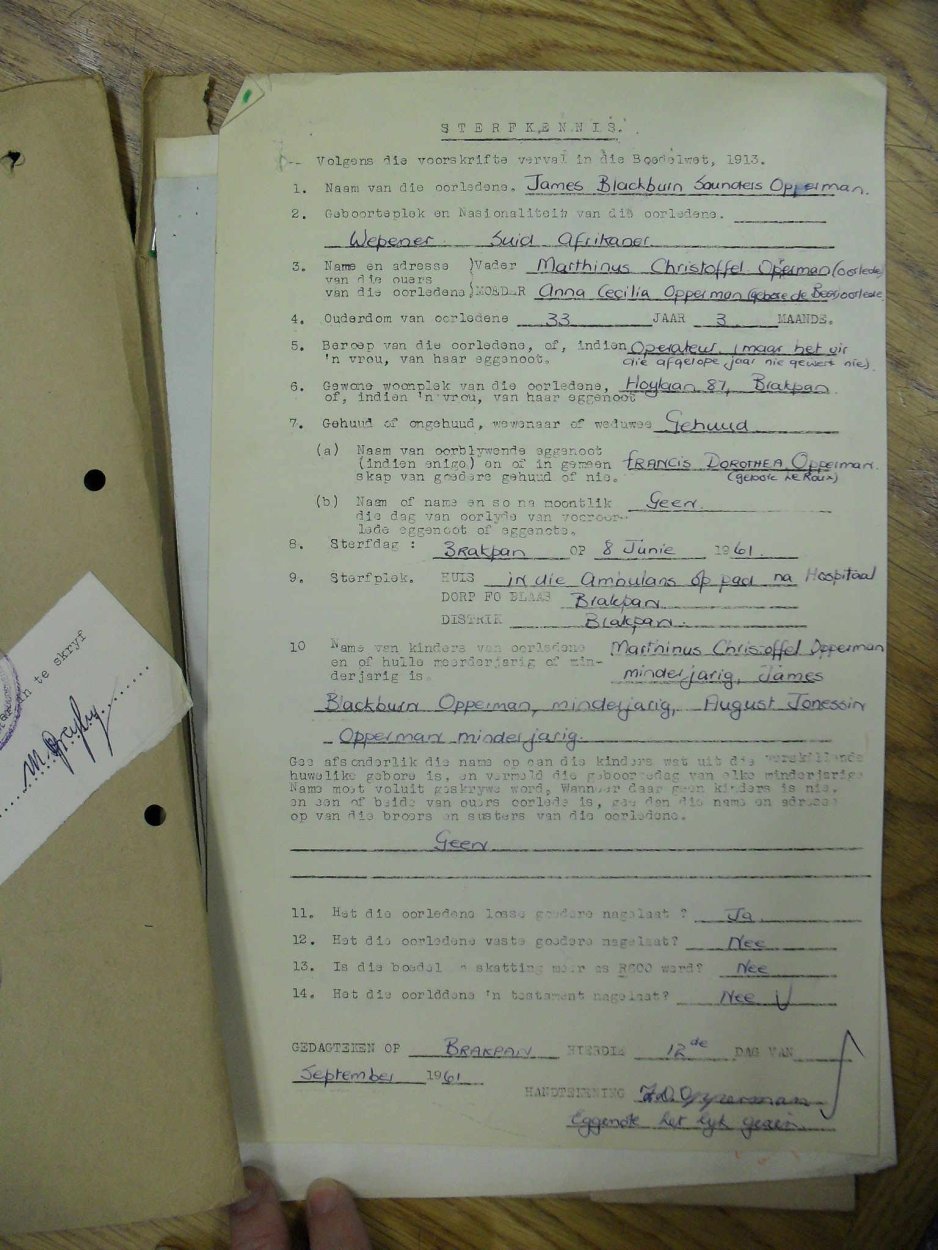 STERFKENNIS.
Volgens die voorskrifte vervat in die Boedelwet, 1913.
1. Naam van die oorledene. James Blackburn Saunders Opperman.
2. Geboorteplek en Nasionaliteit van die oorledene.
Wepener Suid Afrikaner
3. Name en adresse )Vader Marthinus Christoffel Opperman (oorlede)
van die ouers
van die oorledene)MOEDER Anna Cecilia Opperman (gebore de Beer) oorlede
4. Ouderdom van oorledene 33 JAAR 3 MAANDE.
5. Beroep van die oorledene, of, indien Operateur (maar het vir
'n vrou, van haar eggenoot. die afgelope jaar nie gewerk nie).
6. Gewone woonplek van die oorledene, Hoylaan 87, Brakpan
of, indien 'n vrou, van haar eggenoot
7. Gehuud of ongehuud, wewenaar of weduwee Gehuud
(a) Naam van oorblywende eggenoot
(indien enige) en of in gemeen FRANCIS DOROTHEA Opperman.
skap van goedere gehuud of nie. (gebore Le Roux)
(b) Naam of name en so na moontlik Geen.
die dag van oorlyde van vooroor-
lede eggenoot of eggenote.
8. Sterfdag : Brakpan OP 8 Junie 1961.
9. Sterfplek. HUIS in die Ambulans op pad na Hospitaal
DORP FO PLAAS Brakpan
DISTRIK Brakpan.
10 Name van kinders van oorledene Marthinus Christoffel Opperman
en of hulle meerderjarig of min- minderjarig, James
derjarig is.
Blackburn Opperman, minderjarig, August
Opperman minderjarig.
Gee afsonderlik die name op van die kinders wat uit die verskillende
huwelike gebore is, en vermeld die geboortedag van elke minderjarige
Name moet voluit geskrywe word, Wanneer daar geen kinders is nie,
en een of beide van ouers oorlede is, gee dan die name en adresse
op van die broers en susters van die oorledene.
Geen
11. Het die oorledene losse goedere nagelaat ? Ja
12. Het die oorledene vaste goedere nagelaat? Nee
13. Is die boedel n skatting meer as R600 werd? Nee
14. Het die oorlddene 'n testament nagelaat? Nee
GEDAGTEKEN OP BRAKPAN HIERDIE 12de DAG VAN
September 1961
HANDTEKENING F.D. Opperman
Eggenote het lyk gesien.
te skryf